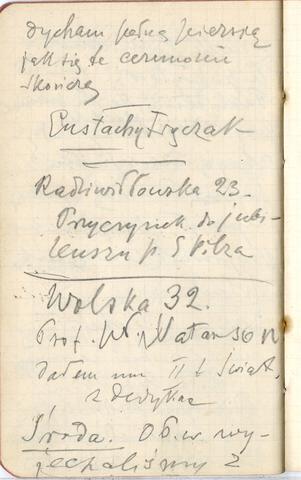 oddycham pełną piersią
jak się te ceremonie
skończą
Eustachy Fryczak
Radziwiłłowska 23.
Przyczynek do jubi-
leuszu p. S Pilza
Wolska 32.
Prof. Wł. Natanson
Dałem mu II t Świat.
z dedykac
Środa. Ob.w wy-
jechaliśmy z